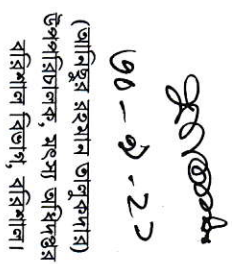 (আনিছুর রহমান তালুকদার)
উপপরিচালক, মৎস্য অধিদপ্তর
বরিশাল বিভাগ, বরিশাল।